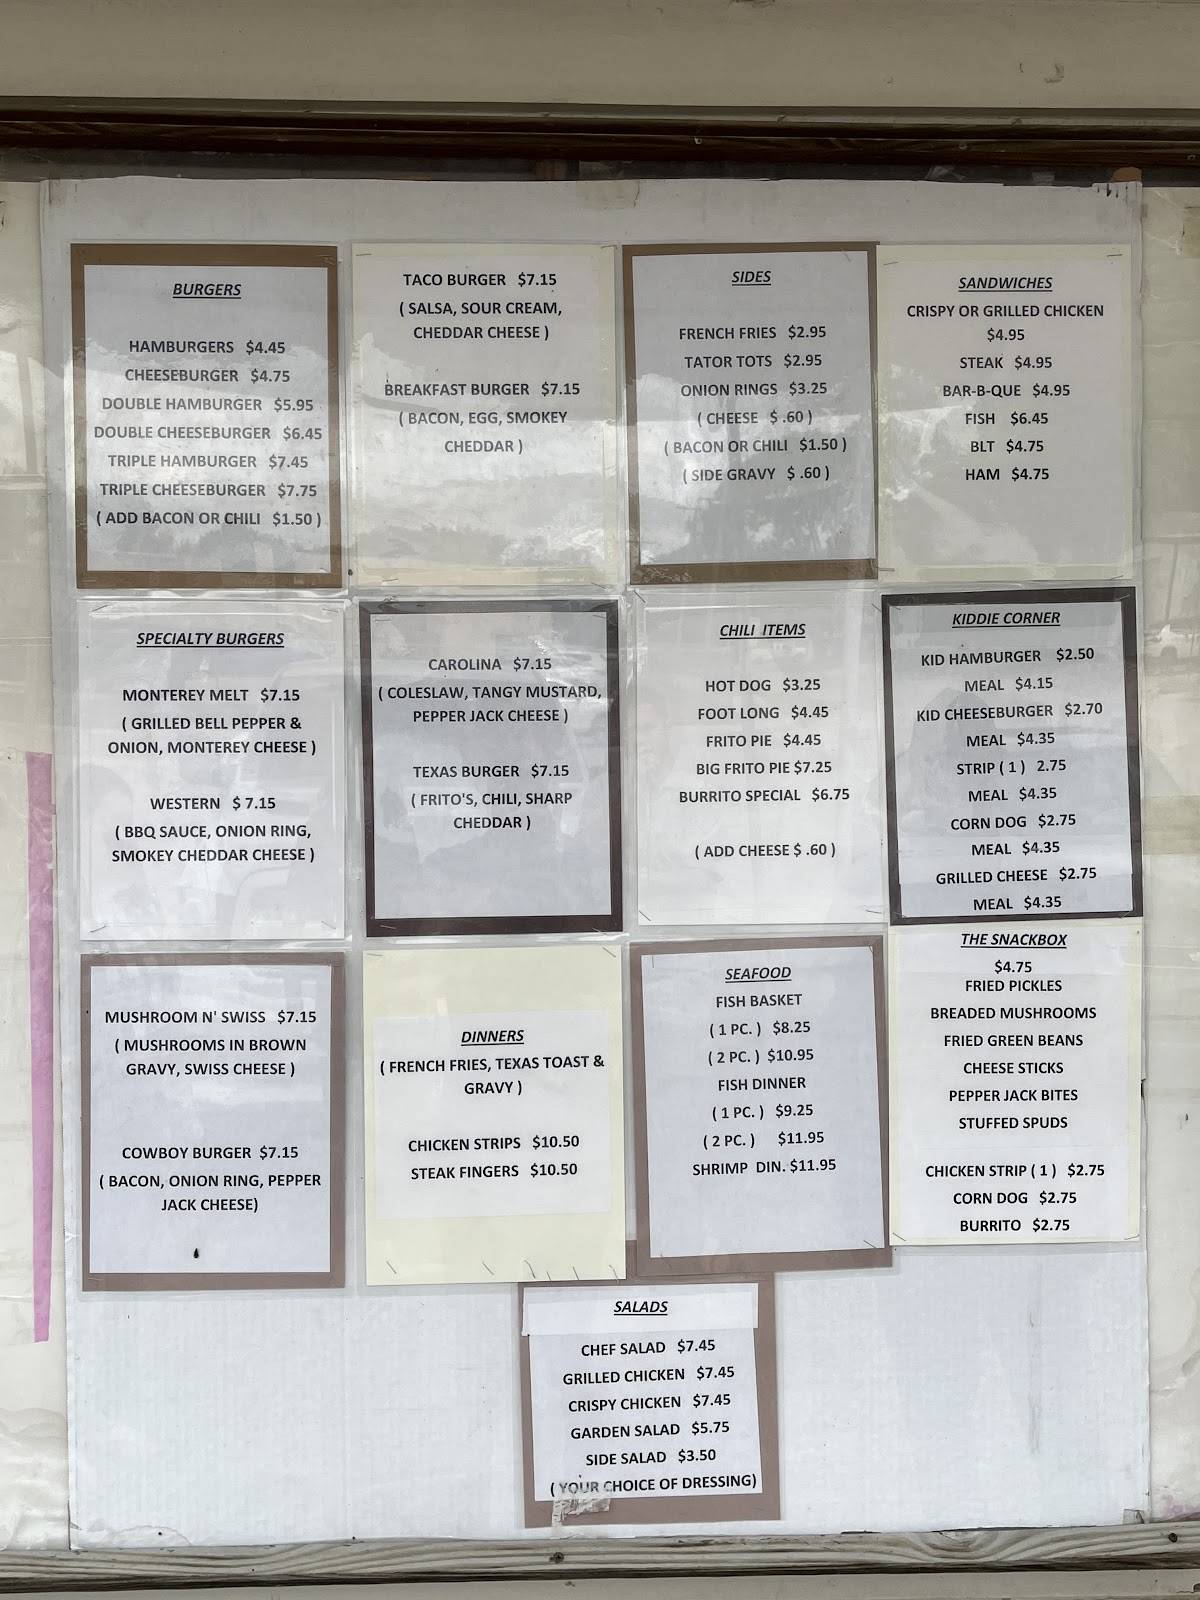 BURGERS
HAMBURGERS $4.45
CHEESEBURGER $4.75
DOUBLE HAMBURGER $5.95
DOUBLE CHEESEBURGER $6.45
TRIPLE HAMBURGER $7.45
TRIPLE CHEESEBURGER $7.75
( ADD BACON OR CHILI $1.50 )
TACO BURGER $7.15
( SALSA, SOUR CREAM,
CHEDDAR CHEESE )
BREAKFAST BURGER $7.15
( BACON, EGG, SMOKEY
CHEDDAR )
SIDES
FRENCH FRIES $2.95
TATOR TOTS $2.95
ONION RINGS $3.25
( CHEESE $ .60 )
( BACON OR CHILI $1.50 )
( SIDE GRAVY $ .60 )
SANDWICHES
CRISPY OR GRILLED CHICKEN
$4.95
STEAK $4.95
BAR-B-QUE $4.95
FISH $6.45
BLT $4.75
HAM $4.75
SPECIALTY BURGERS
MONTEREY MELT $7.15
( GRILLED BELL PEPPER &
ONION, MONTEREY CHEESE )
WESTERN $ 7.15
( BBQ SAUCE, ONION RING,
SMOKEY CHEDDAR CHEESE )
CAROLINA $7.15
( COLESLAW, TANGY MUSTARD,
PEPPER JACK CHEESE )
TEXAS BURGER $7.15
( FRITO'S, CHILI, SHARP
CHEDDAR )
CHILI ITEMS
HOT DOG $3.25
FOOT LONG $4.45
FRITO PIE $4.45
BIG FRITO PIE $7.25
BURRITO SPECIAL $6.75
( ADD CHEESE $ .60 )
KIDDIE CORNER
KID HAMBURGER $2.50
MEAL $4.15
KID CHEESEBURGER $2.70
MEAL $4.35
STRIP ( 1 ) 2.75
MEAL $4.35
CORN DOG $2.75
MEAL $4.35
GRILLED CHEESE $2.75
MEAL $4.35
MUSHROOM N' SWISS $7.15
( MUSHROOMS IN BROWN
GRAVY, SWISS CHEESE )
COWBOY BURGER $7.15
( BACON, ONION RING, PEPPER
JACK CHEESE)
DINNERS
( FRENCH FRIES, TEXAS TOAST &
GRAVY )
CHICKEN STRIPS $10.50
STEAK FINGERS $10.50
SEAFOOD
FISH BASKET
( 1 PC. ) $8.25
( 2 PC. ) $10.95
FISH DINNER
( 1 PC. ) $9.25
( 2 PC. ) $11.95
SHRIMP DIN. $11.95
THE SNACKBOX
$4.75
FRIED PICKLES
BREADED MUSHROOMS
FRIED GREEN BEANS
CHEESE STICKS
PEPPER JACK BITES
STUFFED SPUDS
CHICKEN STRIP ( 1 ) $2.75
CORN DOG $2.75
BURRITO $2.75
SALADS
CHEF SALAD $7.45
GRILLED CHICKEN $7.45
CRISPY CHICKEN $7.45
GARDEN SALAD $5.75
SIDE SALAD $3.50
( YOUR CHOICE OF DRESSING)